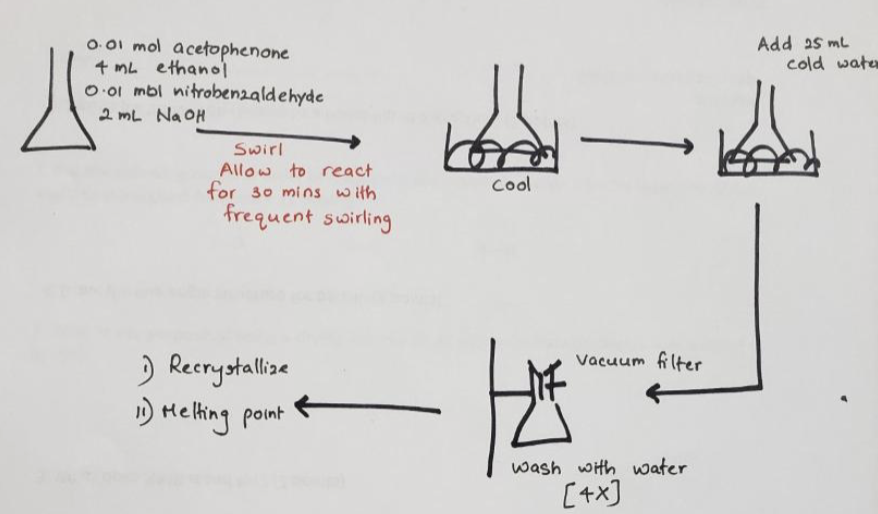 0.01 mol acetophenone
4 mL ethanol
0.01 mol nitrobenzaldehyde
2 mL NaOH
Swirl
Allow to react
for 30 mins with
frequent swirling
Cool
Add 25 mL
cold water
Vacuum filter
wash with water
[4X]
i) Recrystallize
ii) Melting point